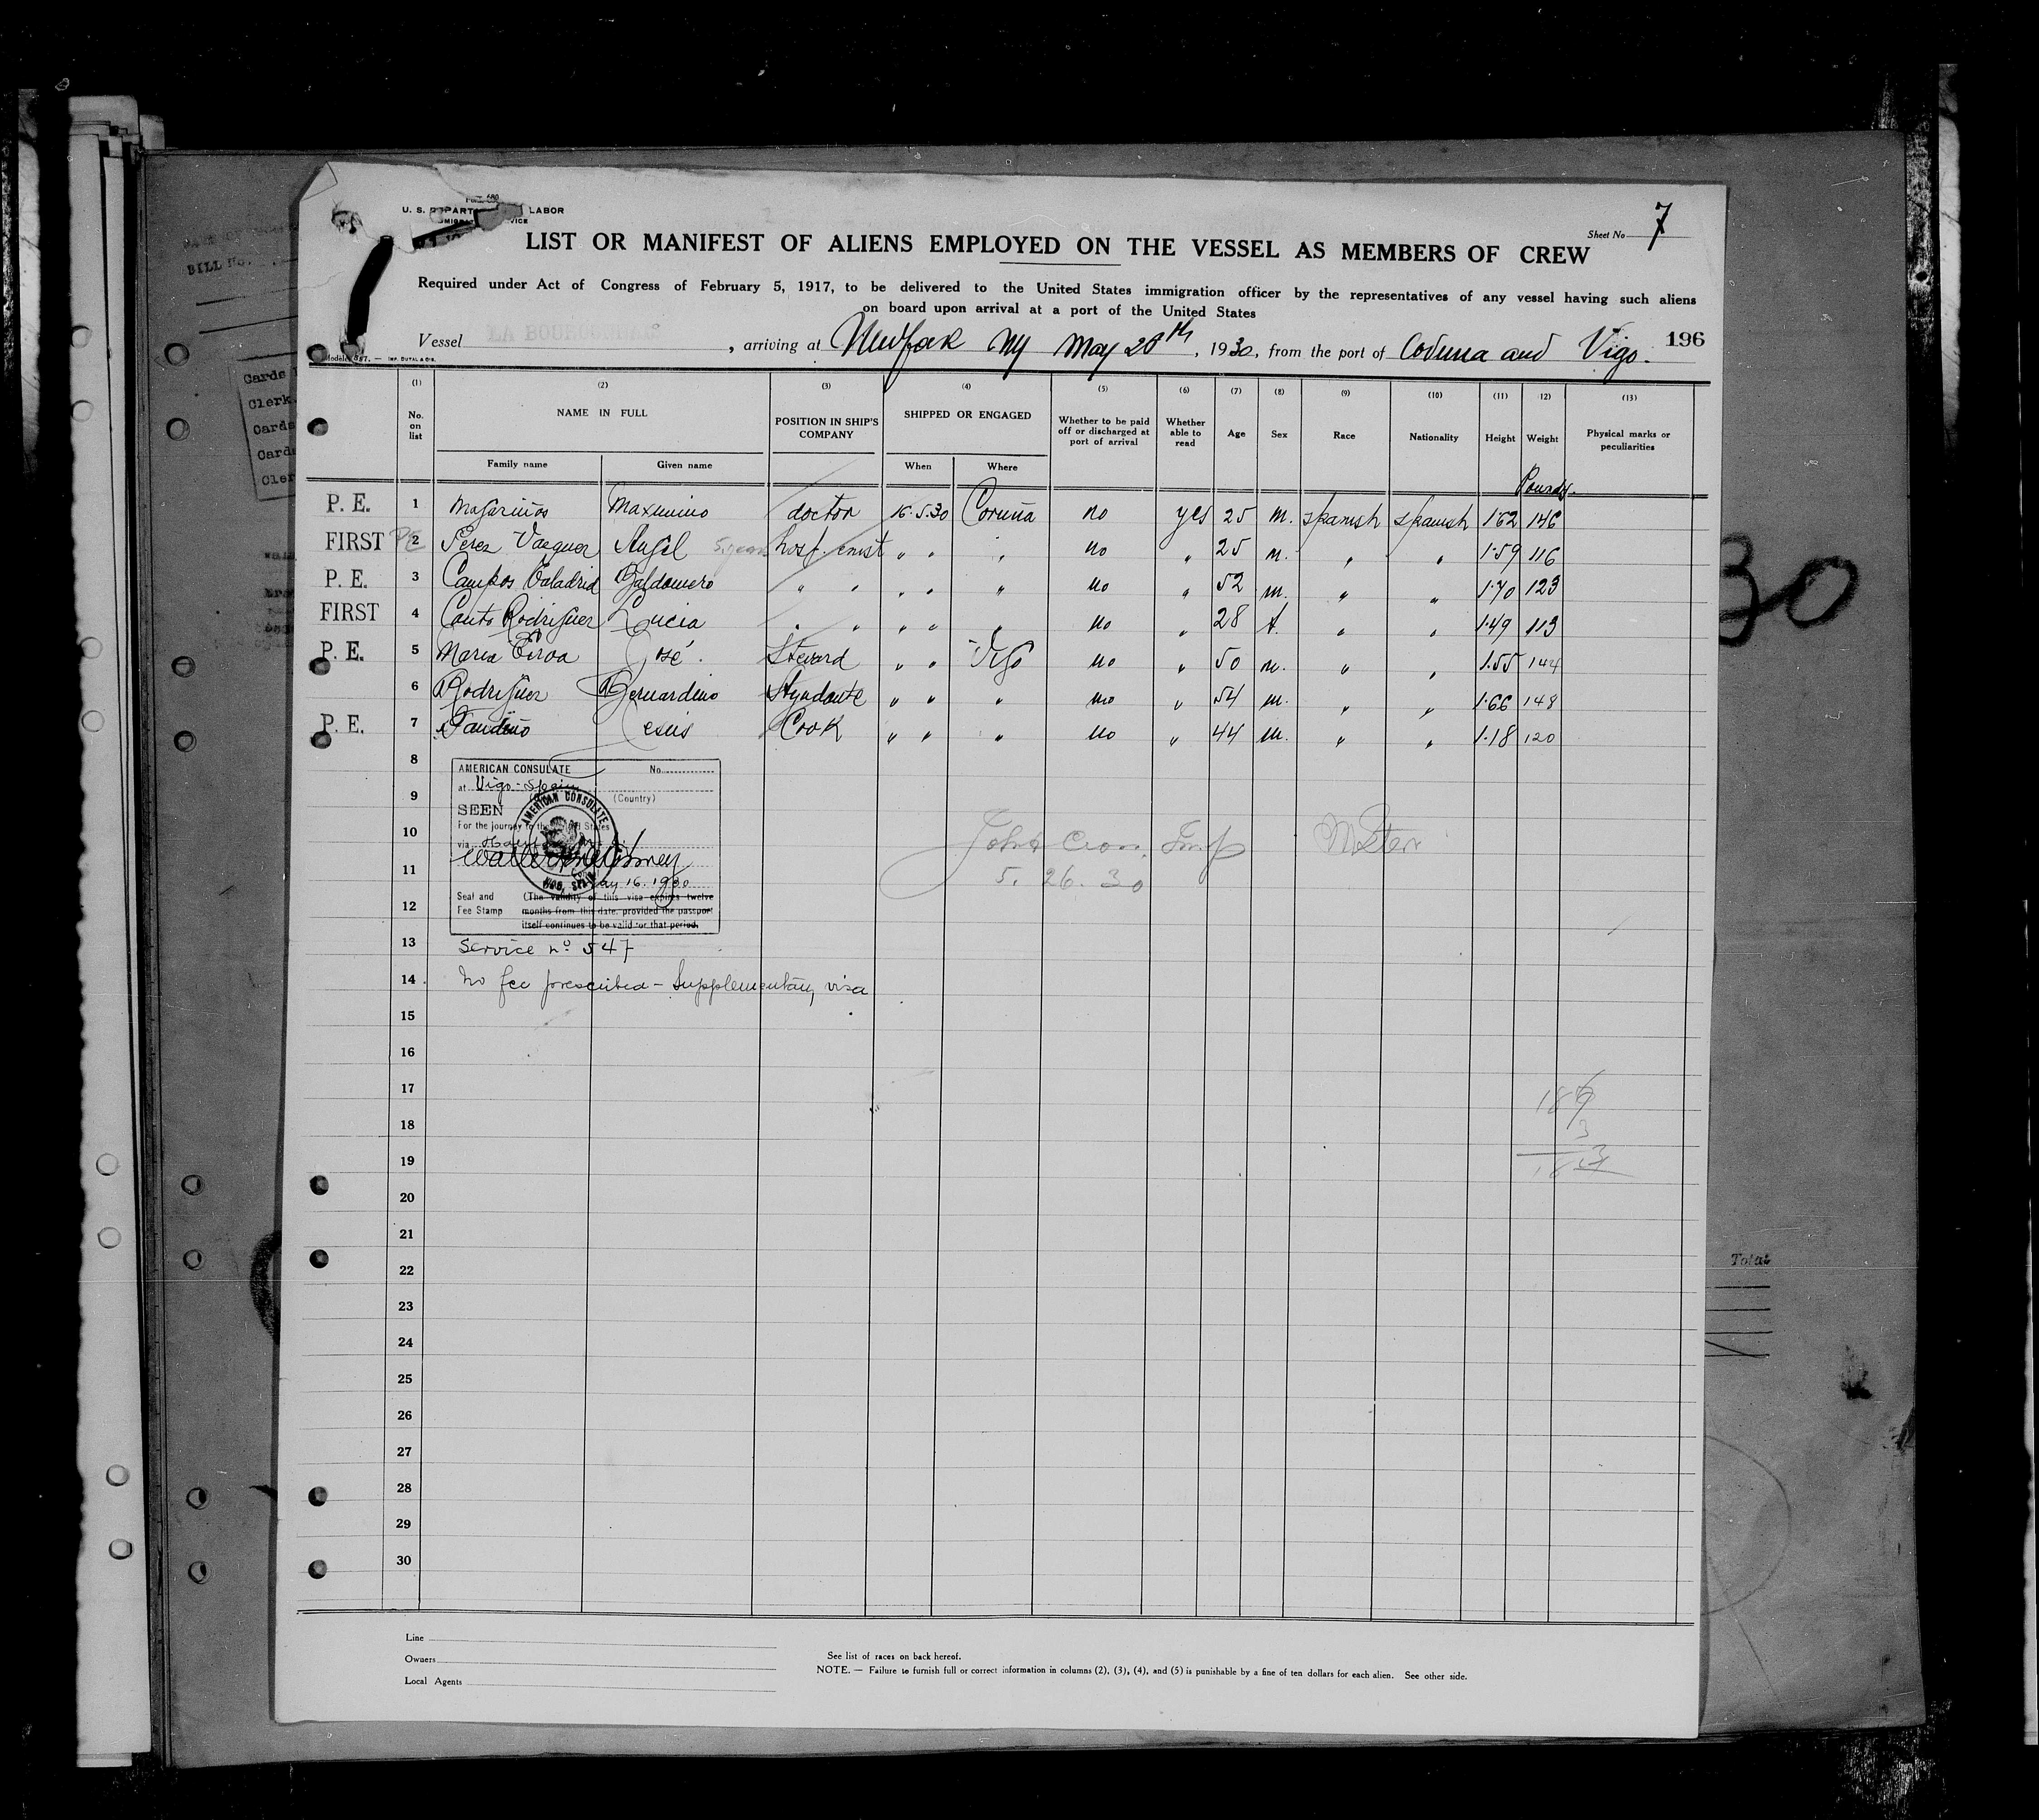 Sheet No 7
U. S. DEPART LABOR
LIST OR MANIFEST OF ALIENS EMPLOYED ON THE VESSEL AS MEMBERS OF CREW
Required under Act of Congress of February 5, 1917, to be delivered to the United States immigration officer by the representatives of any vessel having such aliens
on board upon arrival at a port of the United States
196
Vessel LA BOURDONNAIS, arriving at New York NY May 26th, 1930, from the port of Coruna and Vigo.
IMP. DUTAL & CIE.
(1) (2) (3) (4) (5) (6) (7) (8) (9) (10) (11) (12) (13)
No. on list NAME IN FULL POSITION IN SHIP'S COMPANY SHIPPED OR ENGAGED Whether to be paid off or discharged at port of arrival Whether able to read Age Sex Race Nationality Height Weight Physical marks or peculiarities
Family name Given name When Where
Pounds.
P. E. 1 Magariños Maximino doctor 16.5.30 Coruña no yes 25 m. spanish spanish 1.62 146
FIRST PE 2 Perez Vazquez Angel 5 years hosp. " " " no " 25 m. " " 1.59 116
P. E. 3 Campos Valadrid Baldomero " " " " " no " 52 m. " " 1.70 123
FIRST 4 Canto Rodriguez Lucia " " " " " no " 28 f. " " 1.49 113
P. E. 5 Maria Eiroa José. Steward " " Vigo no " 50 m. " " 1.55 144
6 Rodriguez Bernardino " " " no " 54 m. " " 1.66 148
P. E. 7 Fandiño Jesus Cook " " " no " 44 m. " " 1.18 120
8
AMERICAN CONSULATE No.
at Vigo - Spain
9
(Country)
SEEN
AMERICAN CONSULATE
VIGO, SPAIN
For the journey to the United States
10
via
John Cron. Insp
11
May 16. 1930
5. 26. 30
Seal and Fee Stamp (The validity of this visa expires twelve
months from this date, provided the passport
itself continues to be valid for that period.
12
13 Service nº 547
14 No fee prescribed - Supplementary visa
15
16
17
18
3
19
20
21
22
23
24
25
26
27
28
29
30
Line
Owners
Local Agents
See list of races on back hereof.
NOTE. — Failure to furnish full or correct information in columns (2), (3), (4), and (5) is punishable by a fine of ten dollars for each alien. See other side.
BILL No.
Cards
Clerk
Cards
Cards
Cler
30
Total